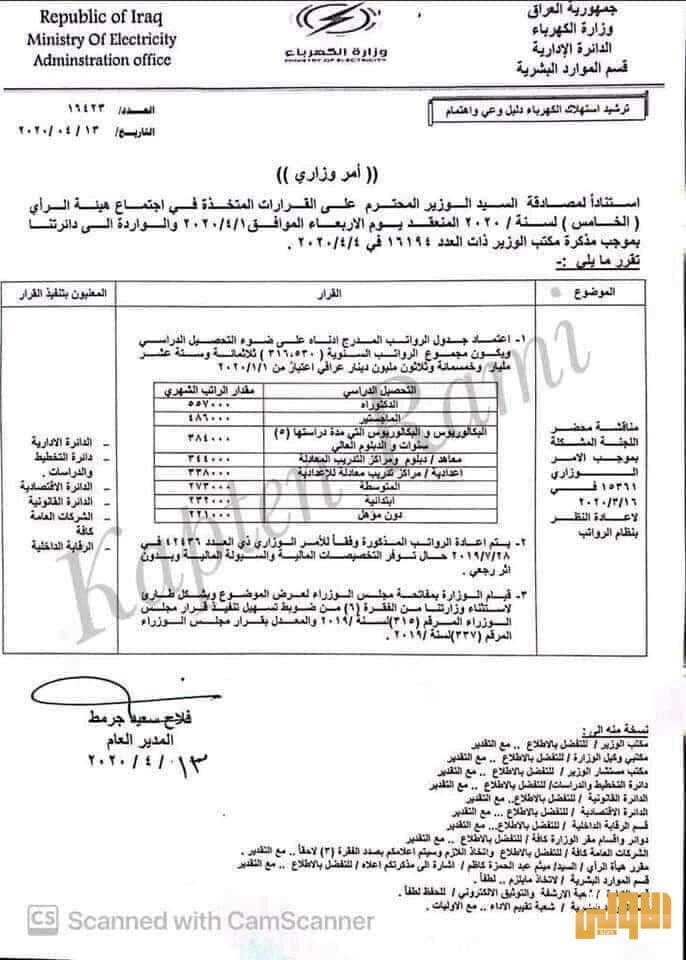 Republic of Iraq
Ministry Of Electricity
Adminstration office
وزارة الكهرباء
MINISTRY OF ELECTRICITY
جمهورية العراق
وزارة الكهرباء
الدائرة الإدارية
قسم الموارد البشرية
العدد/ ١٦٤٢٣
التاريخ/ ١٣ / ٠٤ / ٢٠٢٠
ترشيد استهلاك الكهرباء دليل وعي واهتمام
(( أمر وزاري ))
استناداً لمصادقة السيد الوزير المحترم على القرارات المتخذة في اجتماع هيئة الرأي
( الخامس ) لسنة / ٢٠٢٠ المنعقد يوم الاربعاء الموافق ٢٠٢٠/٤/١ والواردة الى دائرتنا
بموجب مذكرة مكتب الوزير ذات العدد ١٦١٩٤ في ٢٠٢٠/٤/٤ .
تقرر ما يلي :-
الموضوع
القرار
المعنيون بتنفيذ القرار
مناقشة محضر
اللجنة المشكلة
بموجب الامر
الوزاري
١٥٣٦١ في
٢٠٢٠/٣/١٦
لاعادة النظر
بنظام الرواتب
١- اعتماد جدول الرواتب المدرج ادناه على ضوء التحصيل الدراسي
ويكون مجموع الرواتب السنوية ( ٣١٦،٥٣٠ ) ثلاثمائة وستة عشر
مليار وخمسمائة وثلاثون مليون دينار عراقي اعتباراً من ٢٠٢٠/١/١
التحصيل الدراسي مقدار الراتب الشهري
الدكتوراه ٥٥٧٠٠٠
الماجستير ٤٨٦٠٠٠
البكالوريوس و البكالوريوس التي مدة دراستها (٥)
سنوات و الدبلوم العالي ٣٨٤٠٠٠
معاهد/ دبلوم ومراكز التدريب المعادلة ٣٤٤٠٠٠
اعدادية / مراكز تدريب معادلة للإعدادية ٣٣٨٠٠٠
المتوسطة ٢٧٣٠٠٠
ابتدائية ٢٣٢٠٠٠
دون مؤهل ٢٢١٠٠٠
٢- يتم إعادة الرواتب المذكورة وفقاً للأمر الوزاري ذي العدد ٤٢٤٣٦ في
٢٠١٩/٧/٢٨ حال توفر التخصيصات المالية والسيولة المالية وبدون
اثر رجعي .
٣- قيام الوزارة بمفاتحة مجلس الوزراء لعرض الموضوع وبشكل طارئ
لاستثناء وزارتنا من الفقرة (٦) من ضوبط تسهيل تنفيذ قرار مجلس
الوزراء المرقم (٣١٥) لسنة /٢٠١٩ والمعدل بقرار مجلس الوزراء
المرقم (٣٣٧) لسنة /٢٠١٩ .
- الدائرة الادارية
- دائرة التخطيط
والدراسات .
- الدائرة الاقتصادية
- الدائرة القانونية
- الشركات العامة
كافة
- الرقابة الداخلية
Kapten Rami
فلاح سعيد جرمط
المدير العام
١٣ / ٤ / ٢٠٢٠
نسخة منه الى :
مكتب الوزير / للتفضل بالاطلاع .. مع التقدير
مكتبي وكيل الوزارة / للتفضل بالاطلاع .. مع التقدير
مكتب مستشار الوزير / للتفضل بالاطلاع .. مع التقدير
دائرة التخطيط والدراسات/ للتفضل بالاطلاع .. مع التقدير
الدائرة القانونية / للتفضل بالاطلاع.. مع التقدير
الدائرة الاقتصادية / للتفضل بالاطلاع ... مع التقدير
قسم الرقابة الداخلية / للتفضل بالاطلاع... مع التقدير
دوائر واقسام مقر الوزارة كافة / للتفضل بالاطلاع .. مع التقدير
الشركات العامة كافة / للتفضل بالاطلاع واتخاذ اللازم وسيتم إعلامكم بصدد الفقرة (٣) لاحقاً .. مع التقدير .
مقرر هيأة الرأي / السيد/ ميثم عبد الحمزة كاظم / اشارة الى مذكرتكم اعلاه / للتفضل بالاطلاع .. مع التقدير
قسم الموارد البشرية / لاتخاذ مايلزم .. لطفاً .
شعبة الارشفة والتوثيق الالكتروني / للحفظ لطفاً .
شعبة تقييم الاداء .. مع الاوليات .
CS Scanned with CamScanner
الاولى
NEWS